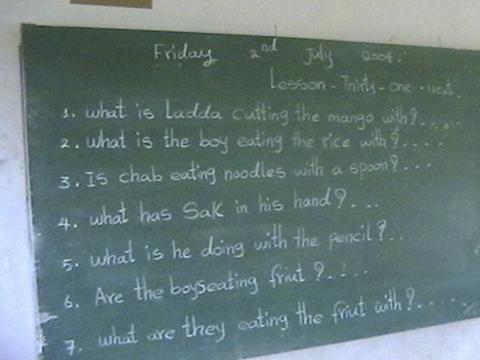 Friday 2nd July 2004.
Lesson - Thirty - one - next.
1. what is Ladda cutting the mango with?....
2. what is the boy eating the rice with?....
3. Is chab eating noodles with a spoon?...
4. what has Sak in his hand?...
5. what is he doing with the pencil?..
6. Are the boyseating friut?....
7. what are they eating the friut with?....